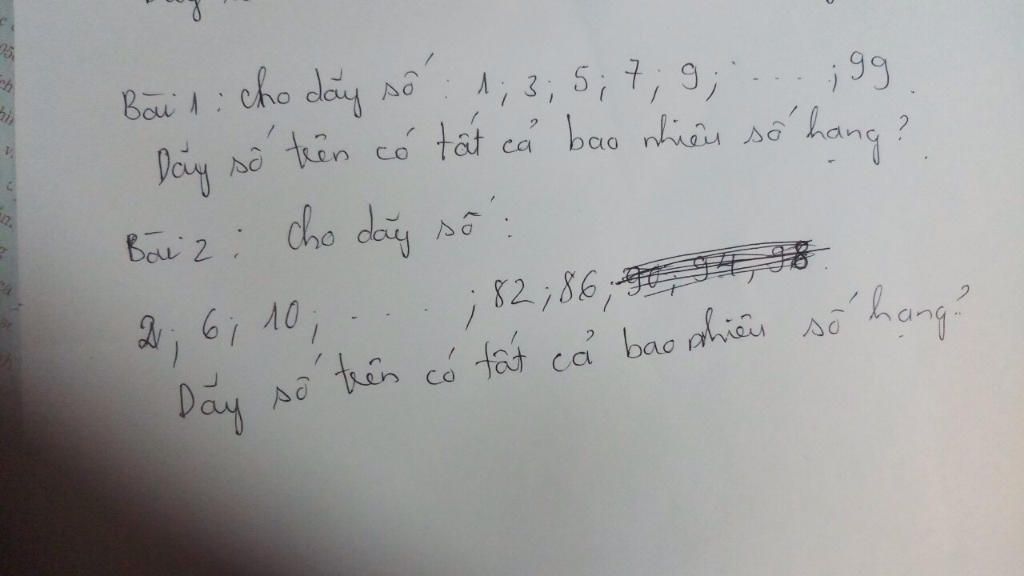 Bài 1 : Cho dãy số : 1 ; 3 ; 5 ; 7 ; 9 ; .... ; 99.
Dãy số trên có tất cả bao nhiêu số hạng ?
Bài 2 : Cho dãy số :
2 ; 6 ; 10 ; .... ; 82 ; 86 ; 90 ; 94 ; 98.
Dãy số trên có tất cả bao nhiêu số hạng ?